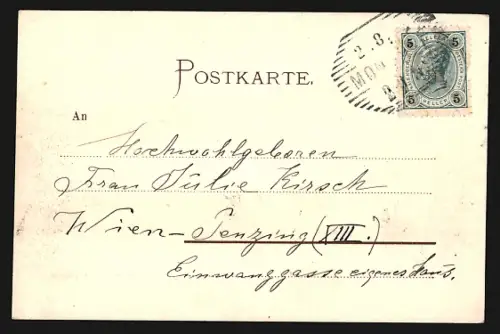 POSTKARTE.
2.8.
MON
5 5
HELLER
5 5
An
Hochwohlgeboren
Frau Julie Kirsch
Wien-Penzing (XIII.)
Einwanggasse eigenes Haus.